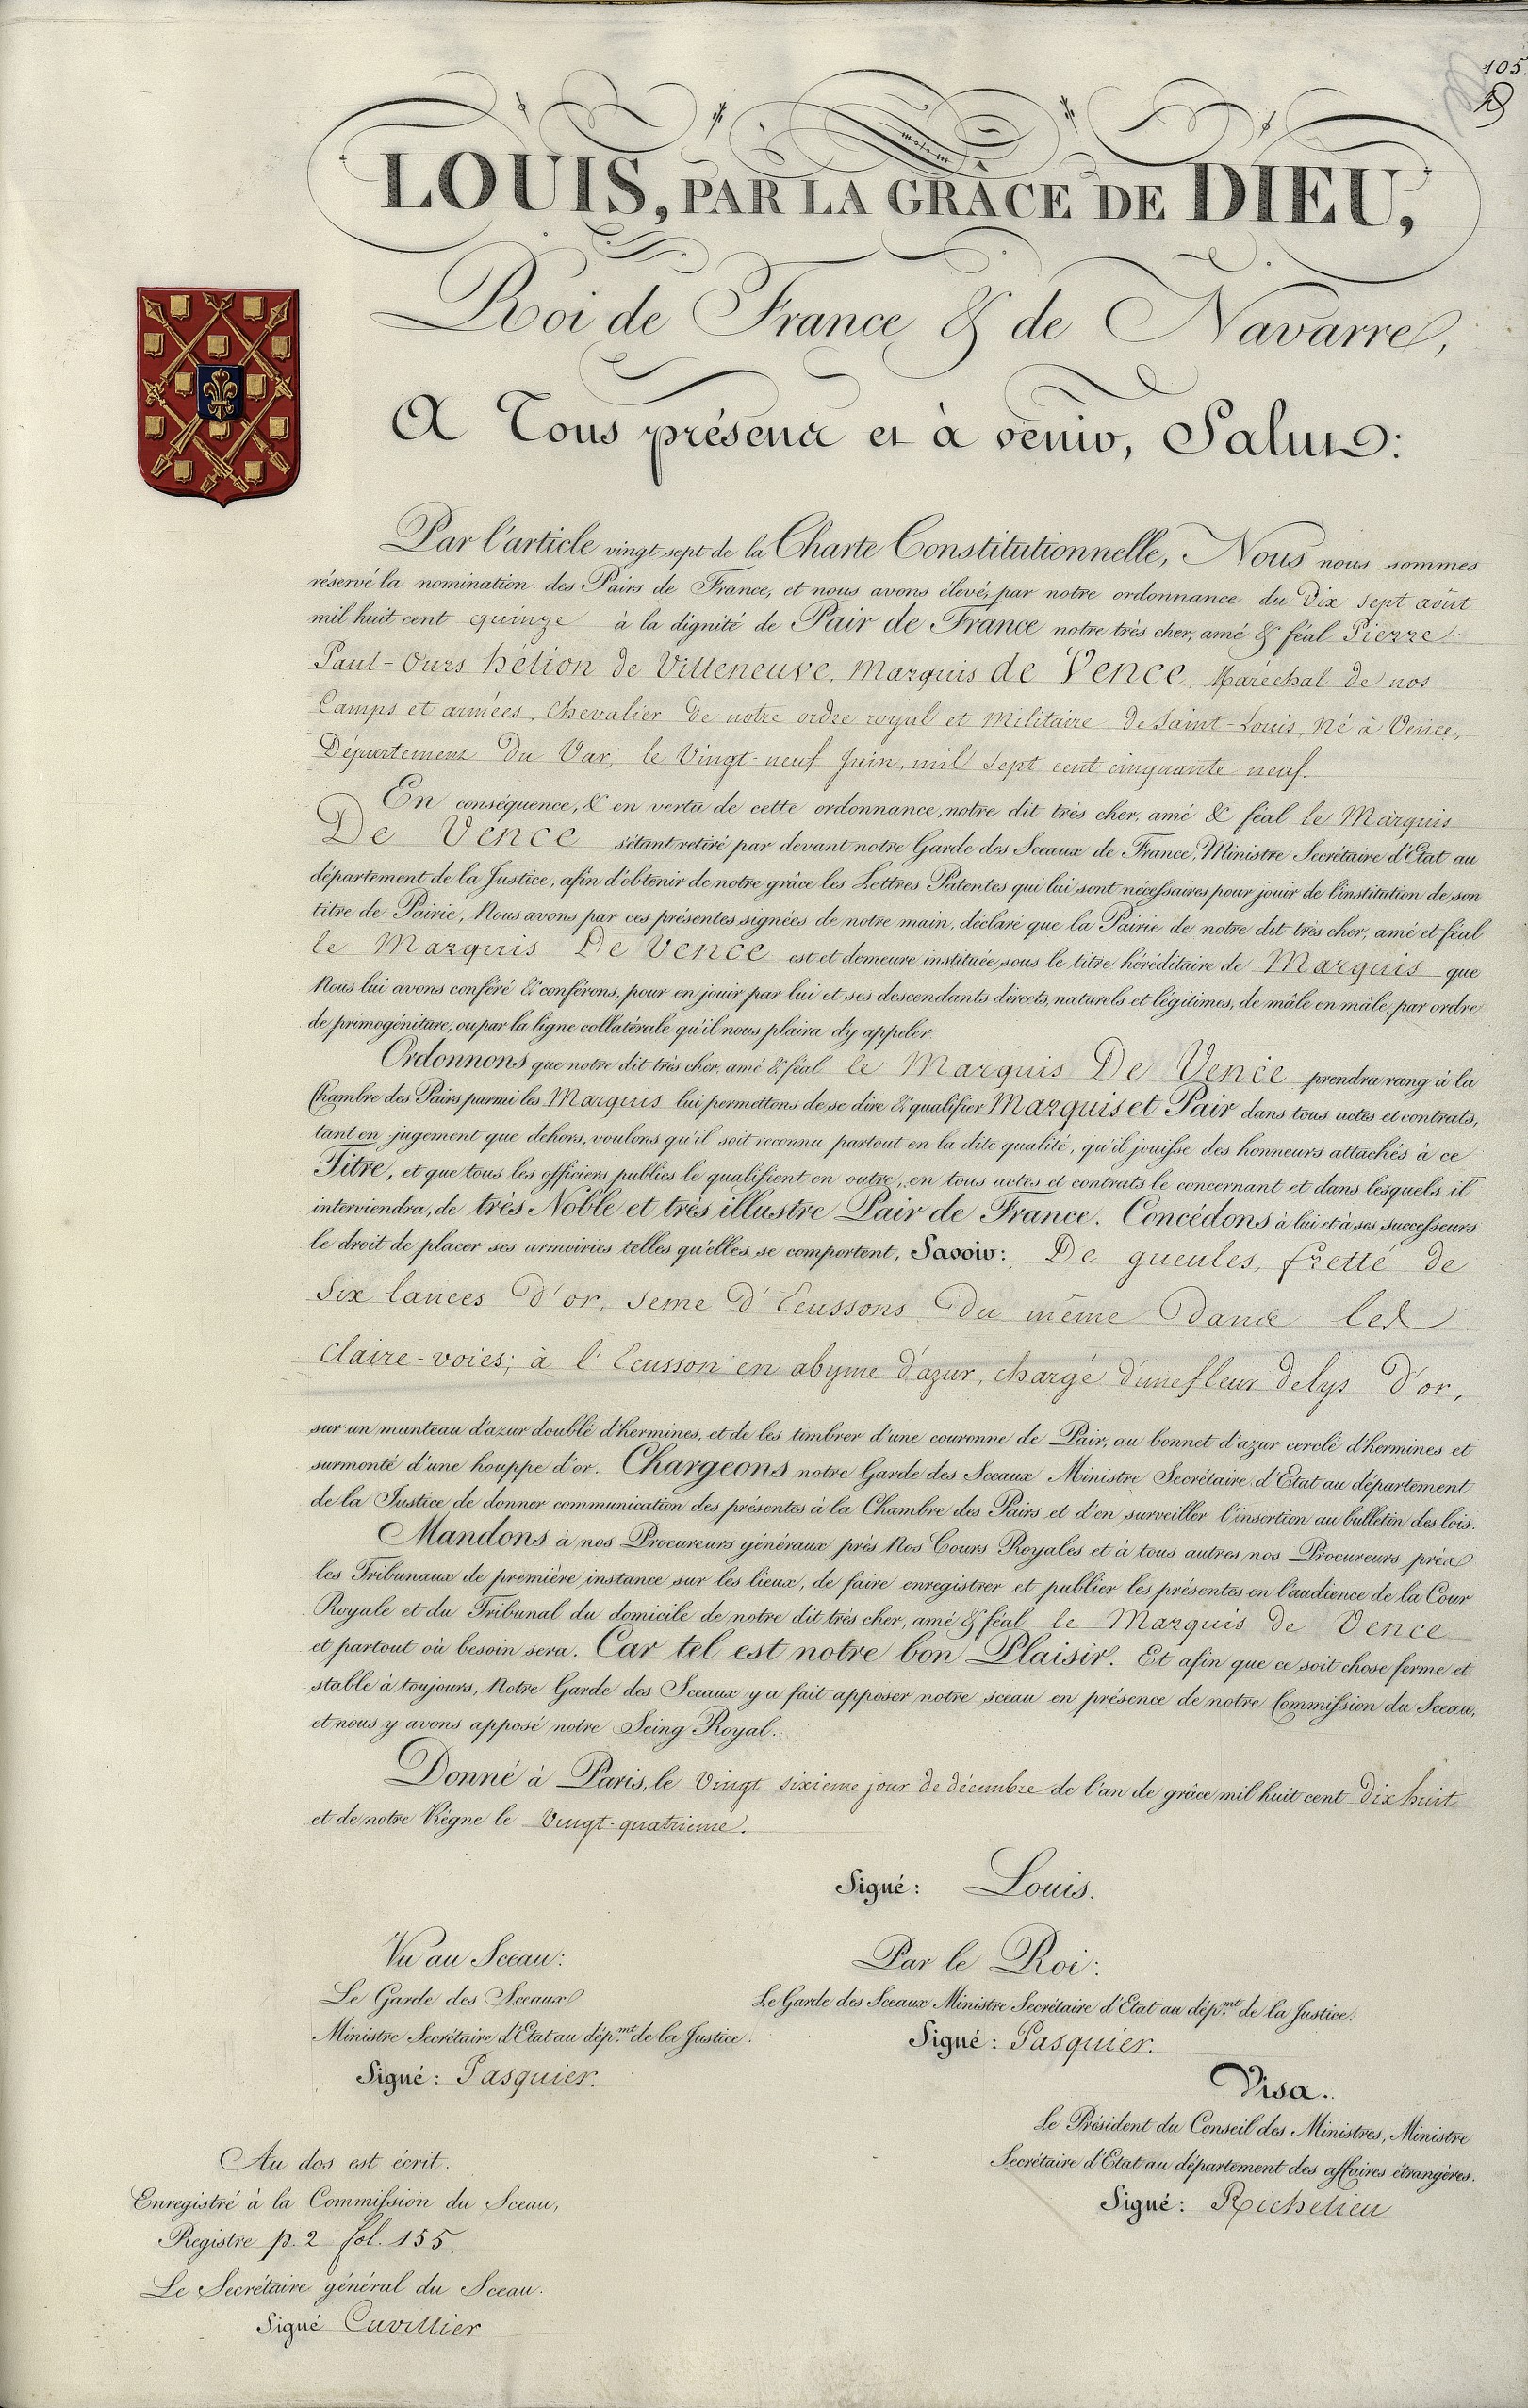 105.
LOUIS, PAR LA GRÂCE DE DIEU,
Roi de France & de Navarre,
A Tous présens et à venir, Salut:
Par l'article vingt sept de la Charte Constitutionnelle, Nous nous sommes
réservé la nomination des Pairs de France, et nous avons élevé, par notre ordonnance du Dix sept août
mil huit cent quinze à la dignité de Pair de France notre très cher, amé & féal Pierre-
Paul-Ours hélion de Villeneuve, Marquis de Vence, Maréchal de nos
Camps et armées, Chevalier de notre ordre royal et Militaire de Saint-Louis, Né à Vence,
Département du Var, le Vingt-neuf Juin, mil Sept cent cinquante neuf.
En conséquence, & en vertu de cette ordonnance, notre dit très cher, amé & féal le Marquis
De Vence s'étant retiré par devant notre Garde des Sceaux de France, Ministre Secrétaire d'Etat au
département de la Justice, afin d'obtenir de notre grâce les Lettres Patentes qui lui sont nécessaires pour jouir de l'institution de son
titre de Pairie, Nous avons par ces présentes signées de notre main, déclaré que la Pairie de notre dit très cher, amé et féal
le Marquis De Vence est et demeure instituée sous le titre héréditaire de Marquis que
Nous lui avons conféré & conférons, pour en jouir par lui et ses descendants directs, naturels et légitimes, de mâle en mâle, par ordre
de primogéniture, ou par la ligne collatérale qu'il nous plaira d'y appeler.
Ordonnons que notre dit très cher, amé & féal le Marquis De Vence prendra rang à la
Chambre des Pairs parmi les Marquis lui permettons de se dire & qualifier Marquis et Pair dans tous actes et contrats,
tant en jugement que dehors, voulons qu'il soit reconnu partout en la dite qualité, qu'il jouisse des honneurs attachés à ce
Titre, et que tous les officiers publics le qualifient en outre, en tous actes et contrats le concernant et dans lesquels il
interviendra, de très Noble et très illustre Pair de France. Concédons à lui et à ses successeurs
le droit de placer ses armoiries telles qu'elles se comportent, Savoir: De gueules, fretté de
Six lances d'or, semé d'Ecussons du même dans les
claire-voies; à l'Ecusson en abyme d'azur, chargé d'une fleur de lys d'or,
sur un manteau d'azur doublé d'hermines, et de les timbrer d'une couronne de Pair, au bonnet d'azur cerclé d'hermines et
surmonté d'une houppe d'or. Chargeons notre Garde des Sceaux Ministre Secrétaire d'Etat au département
de la Justice de donner communication des présentes à la Chambre des Pairs et d'en surveiller l'insertion au bulletin des lois.
Mandons à nos Procureurs généraux près Nos Cours Royales et à tous autres nos Procureurs près
les Tribunaux de première instance sur les lieux, de faire enregistrer et publier les présentes en l'audience de la Cour
Royale et du Tribunal du domicile de notre dit très cher, amé & féal le Marquis de Vence
et partout où besoin sera. Car tel est notre bon Plaisir. Et afin que ce soit chose ferme et
stable à toujours, Notre Garde des Sceaux y a fait apposer notre sceau en présence de notre Commission du Sceau,
et nous y avons apposé notre Seing Royal.
Donné à Paris, le Vingt sixieme jour de décembre de l'an de grâce mil huit cent Dix huit
et de notre Règne le Vingt-quatrieme.
Signé: Louis.
Vu au Sceau:
Le Garde des Sceaux
Ministre Secrétaire d'Etat au dép.mt de la Justice.
Signé: Pasquier.
Par le Roi:
Le Garde des Sceaux Ministre Secrétaire d'Etat au dép.mt de la Justice.
Signé: Pasquier.
Visa.
Le Président du Conseil des Ministres, Ministre
Secrétaire d'Etat au département des affaires étrangères.
Signé: Richelieu
Au dos est écrit.
Enregistré à la Commission du Sceau,
Registre p. 2 fol. 155.
Le Secrétaire général du Sceau.
Signé Cuvillier